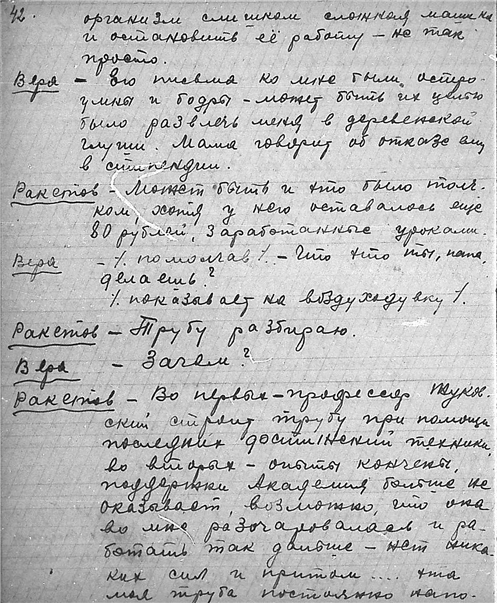 42
организм слишком сложная машина
и остановить её работу – не так
просто.
Вера – Его письма ко мне были остро-
умны и бодры – может быть их целью
было развлечь меня в деревенской
глуши. Мама говорит об отказе ему
в стипендии.
Ракетов Может быть и это было толч-
ком, хотя у него оставалось еще
80 рублей, заработанные уроками.
Вера – /. помолчав /. – Что это ты, папа,
делаешь?
/. показывает на воздуходувку /.
Ракетов – Трубу разбираю.
Вера – Зачем?
Ракетов – Во первых – профессор Жуков-
ский строит трубу при помощи
последних достижений техники,
во вторых – опыты кончены,
поддержки Академия больше не
оказывает, возможно, что она
во мне разочаровалась и ра-
ботать так дальше – нет ника-
ких сил и притом .... эта
моя труба постоянно напо-